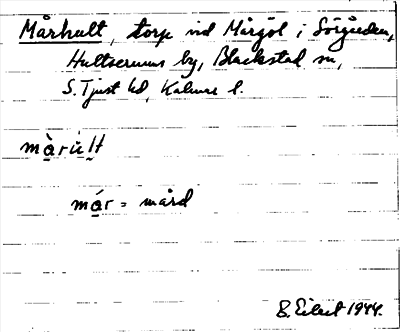 Mårhult, torp vid Mårgöl i Sörgården,
Hultserums by, Blackstad sn,
S. Tjust hd, Kalmar l.
màrùlt
már = mård
E. Eilert 1944.